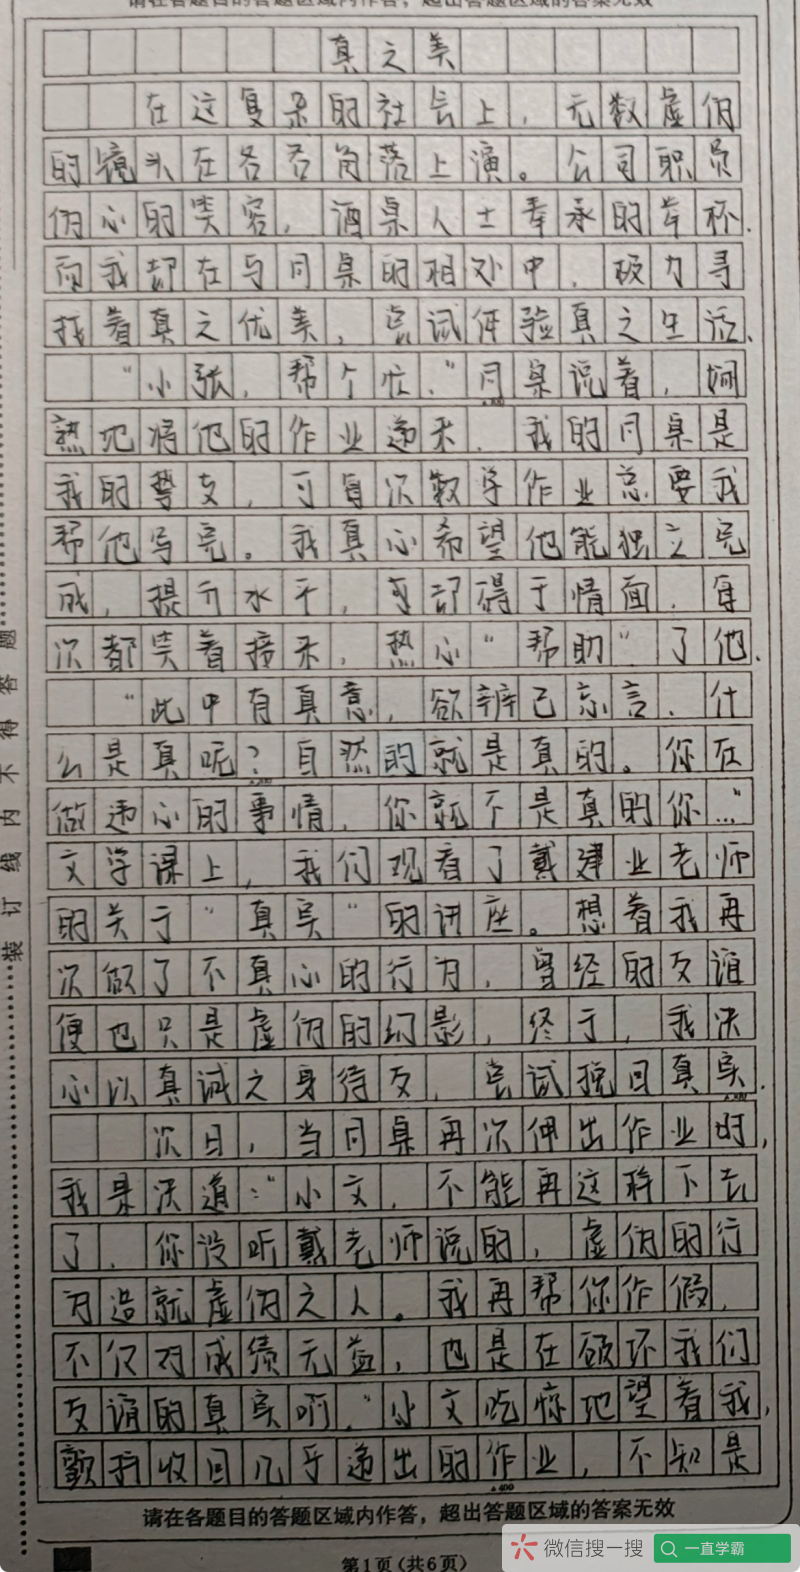 请在各题目的答题区域内作答，超出答题区域的答案无效
真之美
在这复杂的社会上，无数虚伪
的镜头在各各角落上演。公司职员
伪心的笑容，酒桌人士奉承的举杯.
而我却在与同桌的相处中，极力寻
找着真之优美，尝试体验真之生活、
“小张，帮个忙.”同桌说着，娴
熟地将他的作业递来.我的同桌是
我的挚友，可每次数学作业总要我
帮他写完。我真心希望他能独立完
成，提升水平，可却碍于情面，每
次都笑着接来，热心“帮助”了他.
“此中有真意，欲辨已忘言、什
么是真呢？自然的就是真的。你在
做违心的事情，你就不是真的你…”
文学课上，我们观看了戴建业老师
的关于“真实”的讲座。想着我再
次做了不真心的行为，曾经的友谊
便也只是虚伪的幻影，终于，我决
心以真诚之身待友，尝试挽回真实.
次日，当同桌再次伸出作业时，
我果决道：“小文，不能再这样下去
了.你没听戴老师说的，虚伪的行
为造就虚伪之人。我再帮你作假，
不仅对成绩无益，也是在破坏我们
友谊的真实啊.”小文吃惊地望着我，
收回几乎递出的作业，不知是
请在各题目的答题区域内作答，超出答题区域的答案无效
第1页(共6页)
装订线内不得答题
微信搜一搜
一直学霸